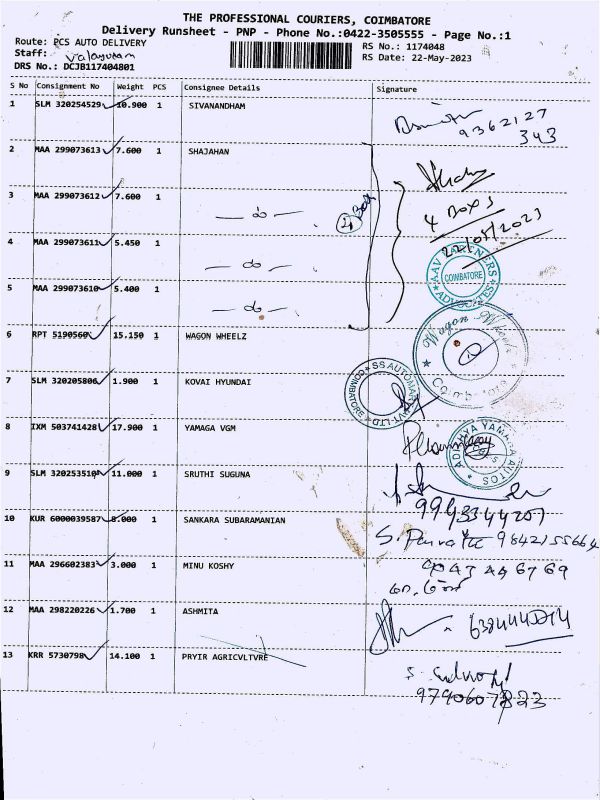 THE PROFESSIONAL COURIERS, COIMBATORE
Delivery Runsheet - PNP - Phone No.:0422-3505555 - Page No.:1
Route: PCS AUTO DELIVERY
RS No.: 1174048
Staff:
RS Date: 22-May-2023
DRS No.: DCJB117404801
S No Consignment No Weight PCS Consignee Details Signature
1 SLM 320254529 10.900 1 SIVANANDHAM
9362127
343
2 MAA 299073613 7.600 1 SHAJAHAN
3 MAA 299073612 7.600 1
4 BOXS
22/05/2023
4 MAA 299073611 5.450 1
AAV PARTNERS COIMBATORE ADVOCATES
5 MAA 299073610 5.400 1
6 RPT 5190560 15.150 1 WAGON WHEELZ
Wagon Wheelz Coimbatore
7 SLM 320205806 1.900 1 KOVAI HYUNDAI
SS AUTOMART PVT LTD COIMBATORE
8 IXM 503741428 17.900 1 YAMAGA VGM
YAMAHA AUTOS
9 SLM 320253510 11.000 1 SRUTHI SUGUNA
9943344207
10 KUR 6000039587 8.000 1 SANKARA SUBARAMANIAN
9842155664
11 MAA 296602383 3.000 1 MINU KOSHY
12 MAA 298220226 1.700 1 ASHMITA
13 KRR 5730798 14.100 1 PRYIR AGRICVLTVRE